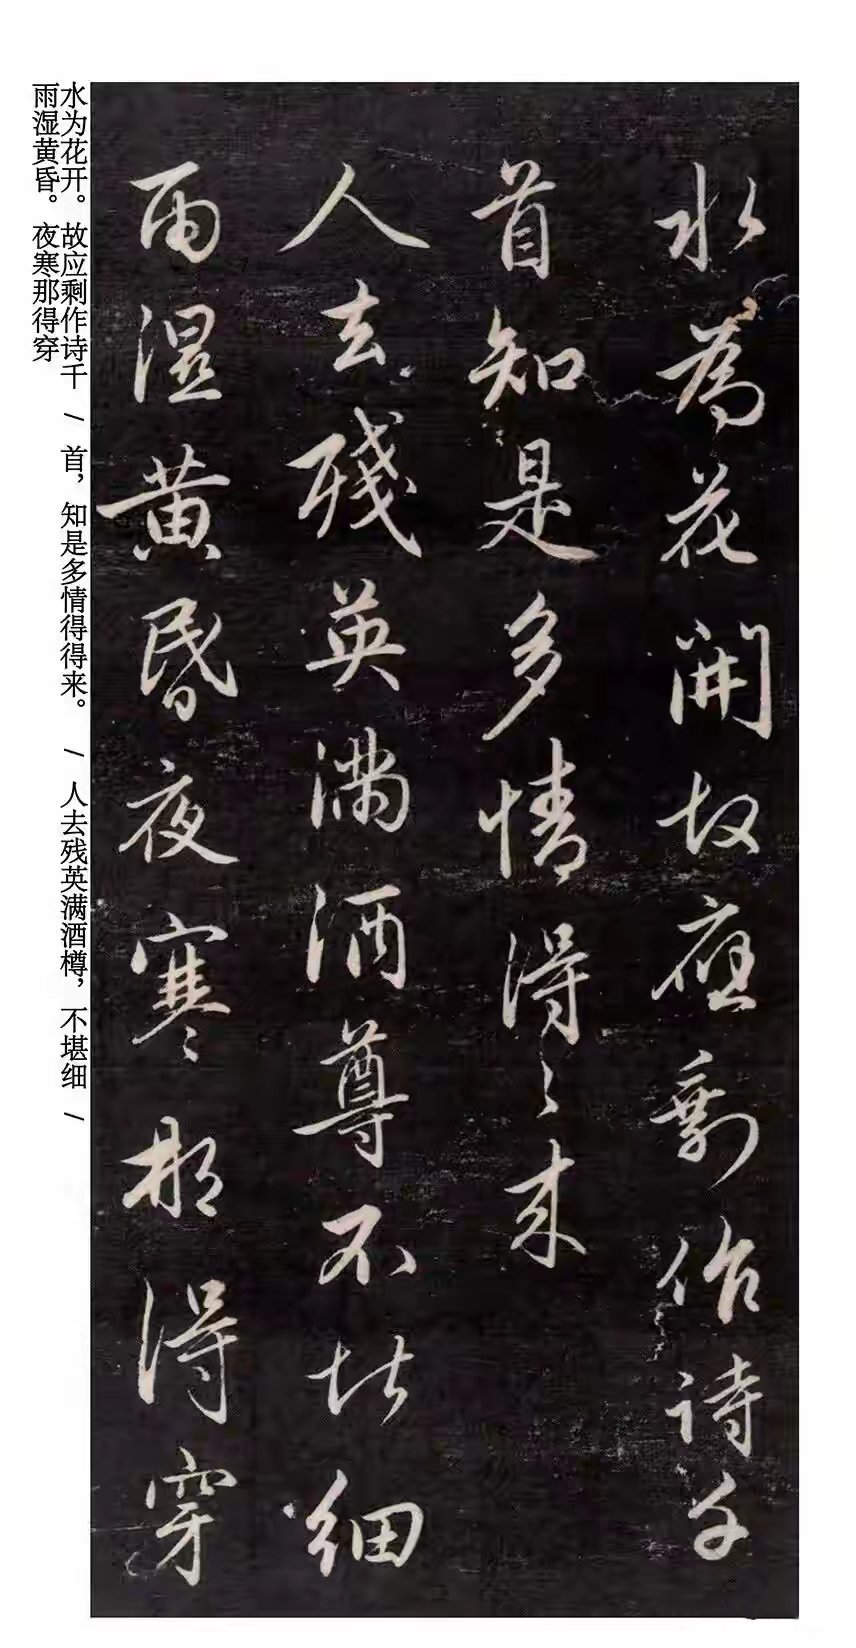 水為花開故應剩作詩千
首知是多情得〻来
人去殘英满酒尊不堪細
雨濕黄昏夜寒那得穿
水为花开。故应剩作诗千 / 首，知是多情得得来。 / 人去残英满酒樽，不堪细 /
雨湿黄昏。夜寒那得穿